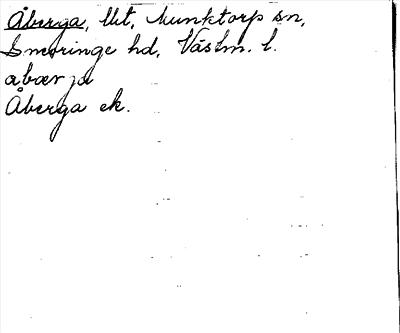 Åberga, Utt, Munktorp sn,
Snevringe hd, Västm. l.
abær ja
Åberga ek.